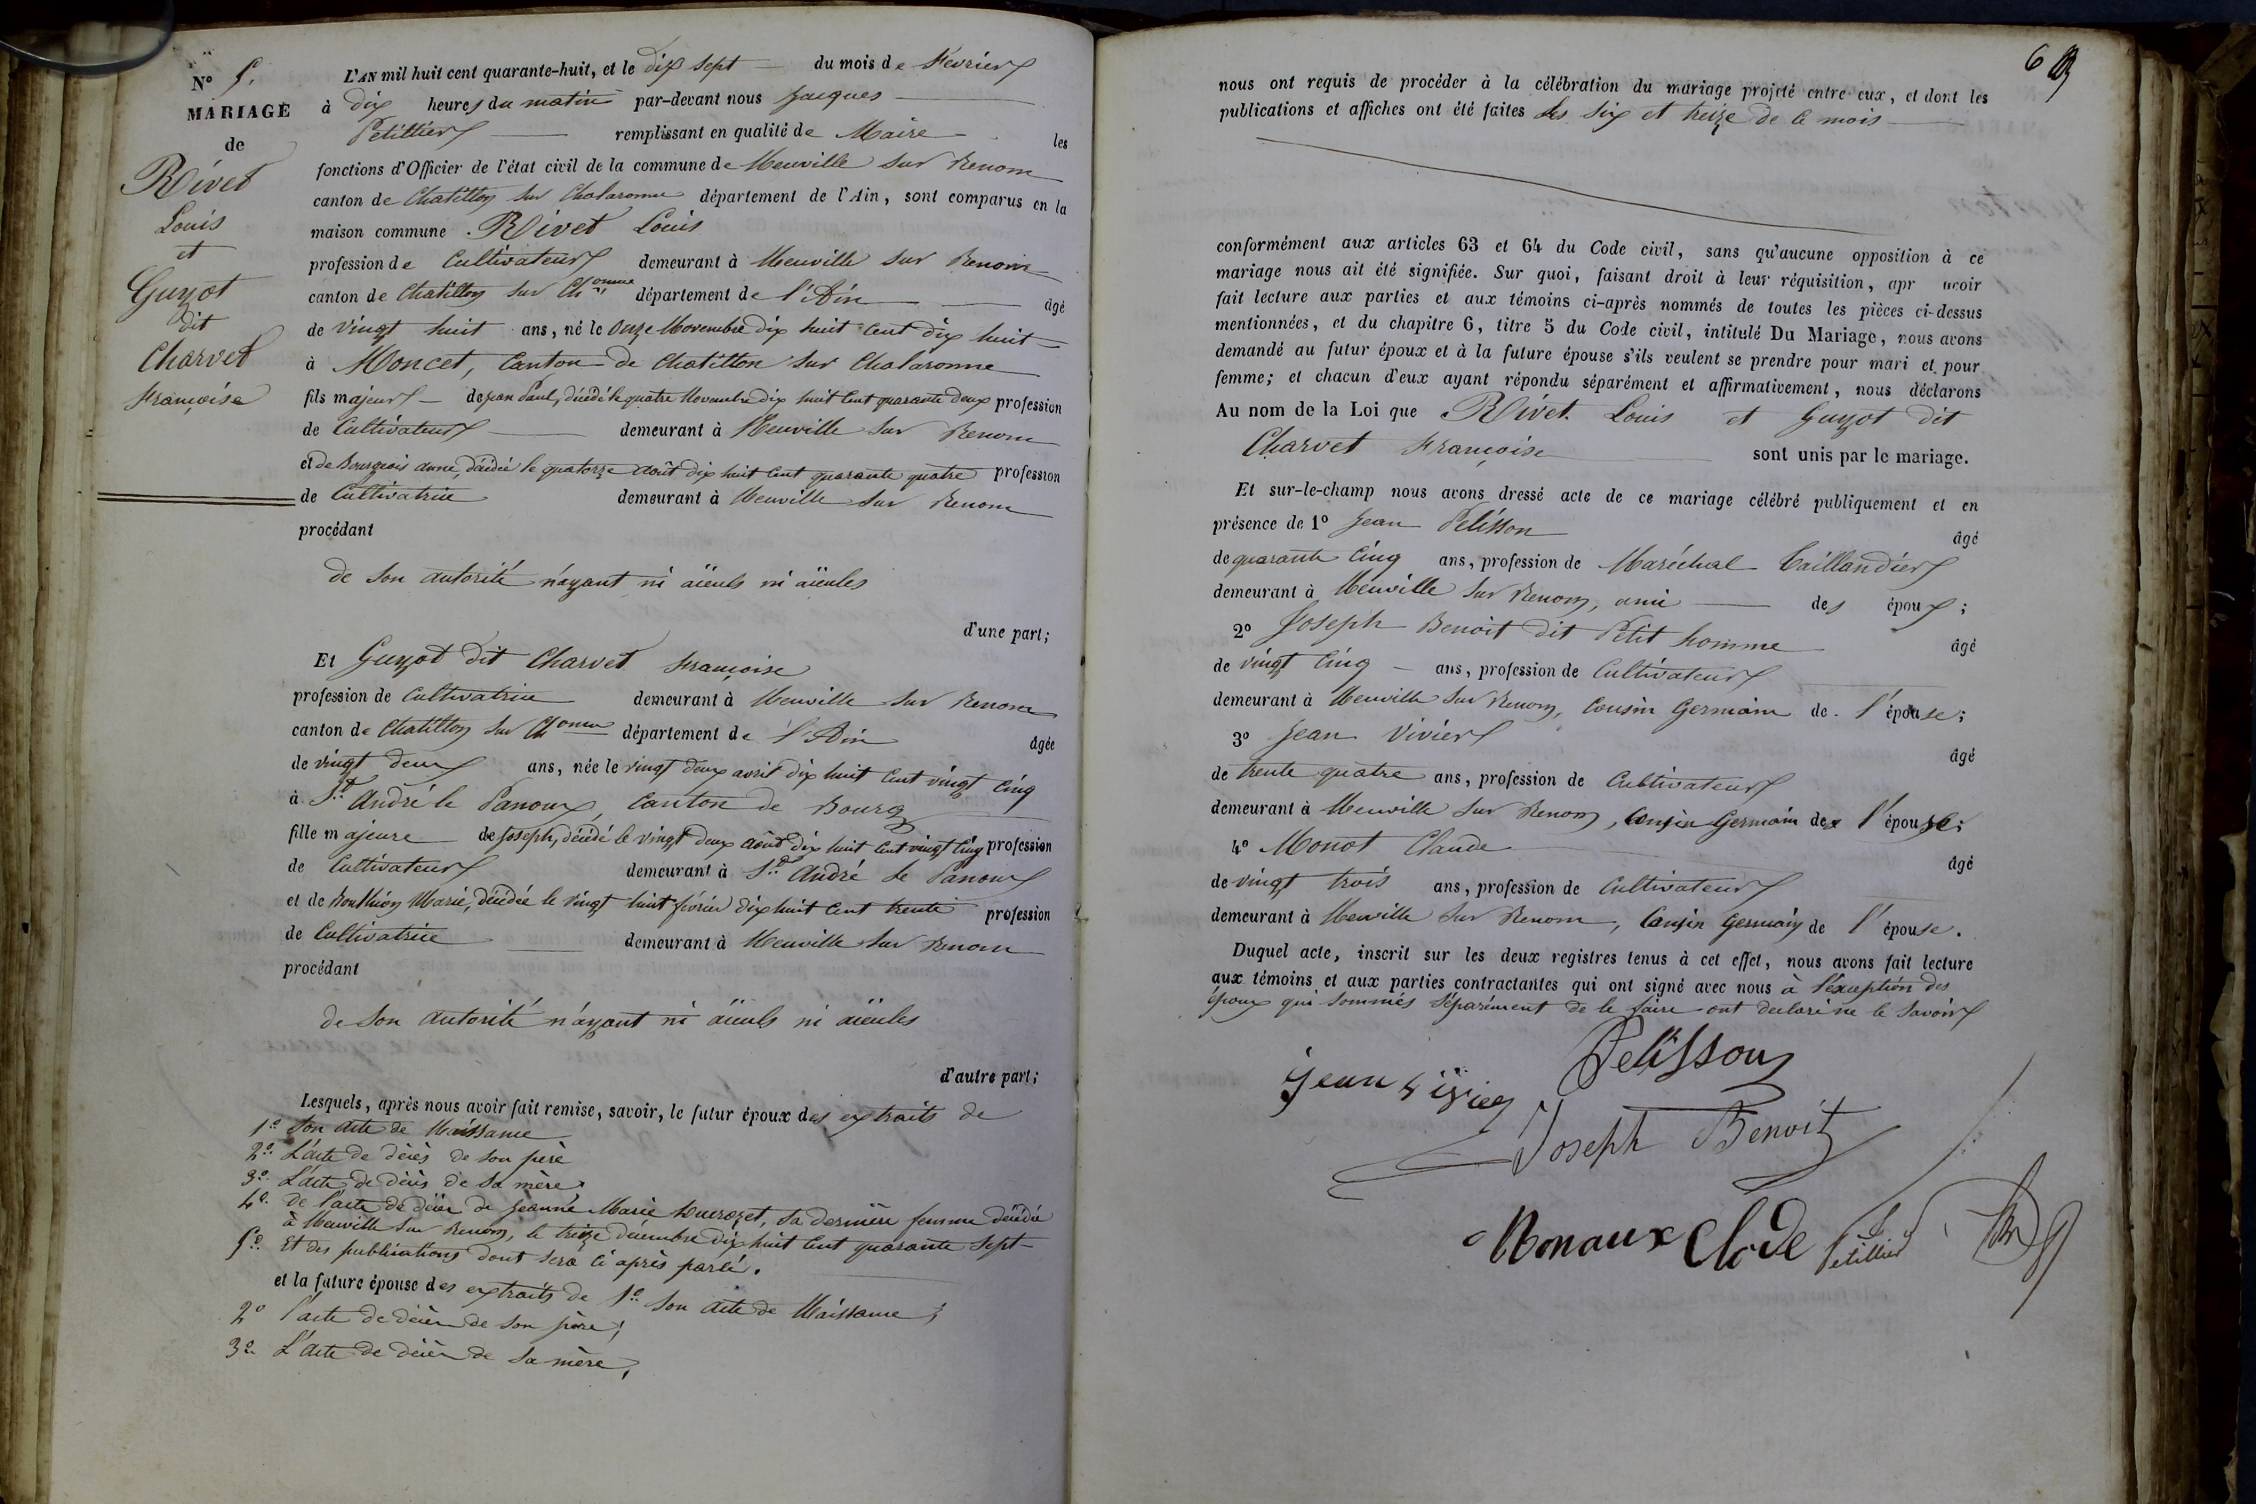 N° 5.
MARIAGE
de
Rivet
Louis
et
Guyot
dit
Charvet
Françoise
L'AN mil huit cent quarante-huit, et le dix sept du mois de Février
à dix heures du matin par-devant nous Jacques
Petillier remplissant en qualité de Maire les
fonctions d'Officier de l'état civil de la commune de Neuville sur Renom
canton de Chatillon sur Chalaronne département de l'Ain, sont comparus en la
maison commune Rivet Louis
profession de Cultivateur demeurant à Neuville sur Renom
canton de Chatillon sur Chonne département de l'Ain âgé
de vingt huit ans, né le onze Novembre dix huit cent dix huit
à Moncet, Canton de Chatillon sur Chalaronne
fils majeur de Jean Paul, décédé le quatre Novembre dix huit cent quarante deux profession
de Cultivateur demeurant à Neuville sur Renom
et de Bourgeois anne, décédée le quatorze août dix huit cent quarante quatre profession
de Cultivatrice demeurant à Neuville sur Renom
procédant
de son autorité n'ayant ni aïeuls ni aïeules
d'une part;
Et Guyot dit Charvet Françoise
profession de Cultivatrice demeurant à Neuville sur Renom
canton de Chatillon sur Chonne département de l'Ain âgée
de vingt deux ans, née le vingt deux avril dix huit cent vingt cinq
à St. André le Panoux, Canton de Bourg
fille majeure de Joseph, décédé le vingt deux août dix huit cent vingt cinq profession
de Cultivateur demeurant à St. André le Panoux
et de Marie, décédée le vingt huit février dix huit cent trente profession
de Cultivatrice demeurant à Neuville sur Renom
procédant
de son autorité n'ayant ni aïeuls ni aïeules
d'autre part;
Lesquels, après nous avoir fait remise, savoir, le futur époux des extraits de
1° Son acte de Naissance
2° L'acte de décès de son père
3° L'acte de décès de sa mère
4° de l'acte de décès de Jeanne Marie Ducrozet, sa dernière femme décédée
à Neuville sur Renom, le treize décembre dix huit cent quarante sept
5° Et des publications dont sera ci après parlé.
et la future épouse des extraits de 1° Son acte de Naissance;
2° l'acte de décès de son père;
3° L'acte de décès de sa mère,
6
nous ont requis de procéder à la célébration du mariage projeté entre eux, et dont les
publications et affiches ont été faites les six et treize de ce mois
conformément aux articles 63 et 64 du Code civil, sans qu'aucune opposition à ce
mariage nous ait été signifiée. Sur quoi, faisant droit à leur réquisition, apr avoir
fait lecture aux parties et aux témoins ci-après nommés de toutes les pièces ci-dessus
mentionnées, et du chapitre 6, titre 5 du Code civil, intitulé Du Mariage, nous avons
demandé au futur époux et à la future épouse s'ils veulent se prendre pour mari et pour
femme; et chacun d'eux ayant répondu séparément et affirmativement, nous déclarons
Au nom de la Loi que Rivet Louis et Guyot dit
Charvet Françoise sont unis par le mariage.
Et sur-le-champ nous avons dressé acte de ce mariage célébré publiquement et en
présence de 1° Jean Pelisson âgé
de quarante cinq ans, profession de Maréchal Taillandier
demeurant à Neuville sur Renom, ami des époux;
2° Joseph Benoit dit Petit homme âgé
de vingt cinq ans, profession de Cultivateur
demeurant à Neuville sur Renom, Cousin Germain de l'épouse;
3° Jean Vivier âgé
de trente quatre ans, profession de Cultivateur
demeurant à Neuville sur Renom, Cousin Germain de l'épouse;
4° Monot Claude âgé
de vingt trois ans, profession de Cultivateur
demeurant à Neuville sur Renom, Cousin Germain de l'épouse.
Duquel acte, inscrit sur les deux registres tenus à cet effet, nous avons fait lecture
aux témoins et aux parties contractantes qui ont signé avec nous à l'éxception des
époux qui sommés séparément de le faire ont declaré ne le savoir
Pelisson
Jean Vivier
Joseph Benoit
Monaux Clode Petillier